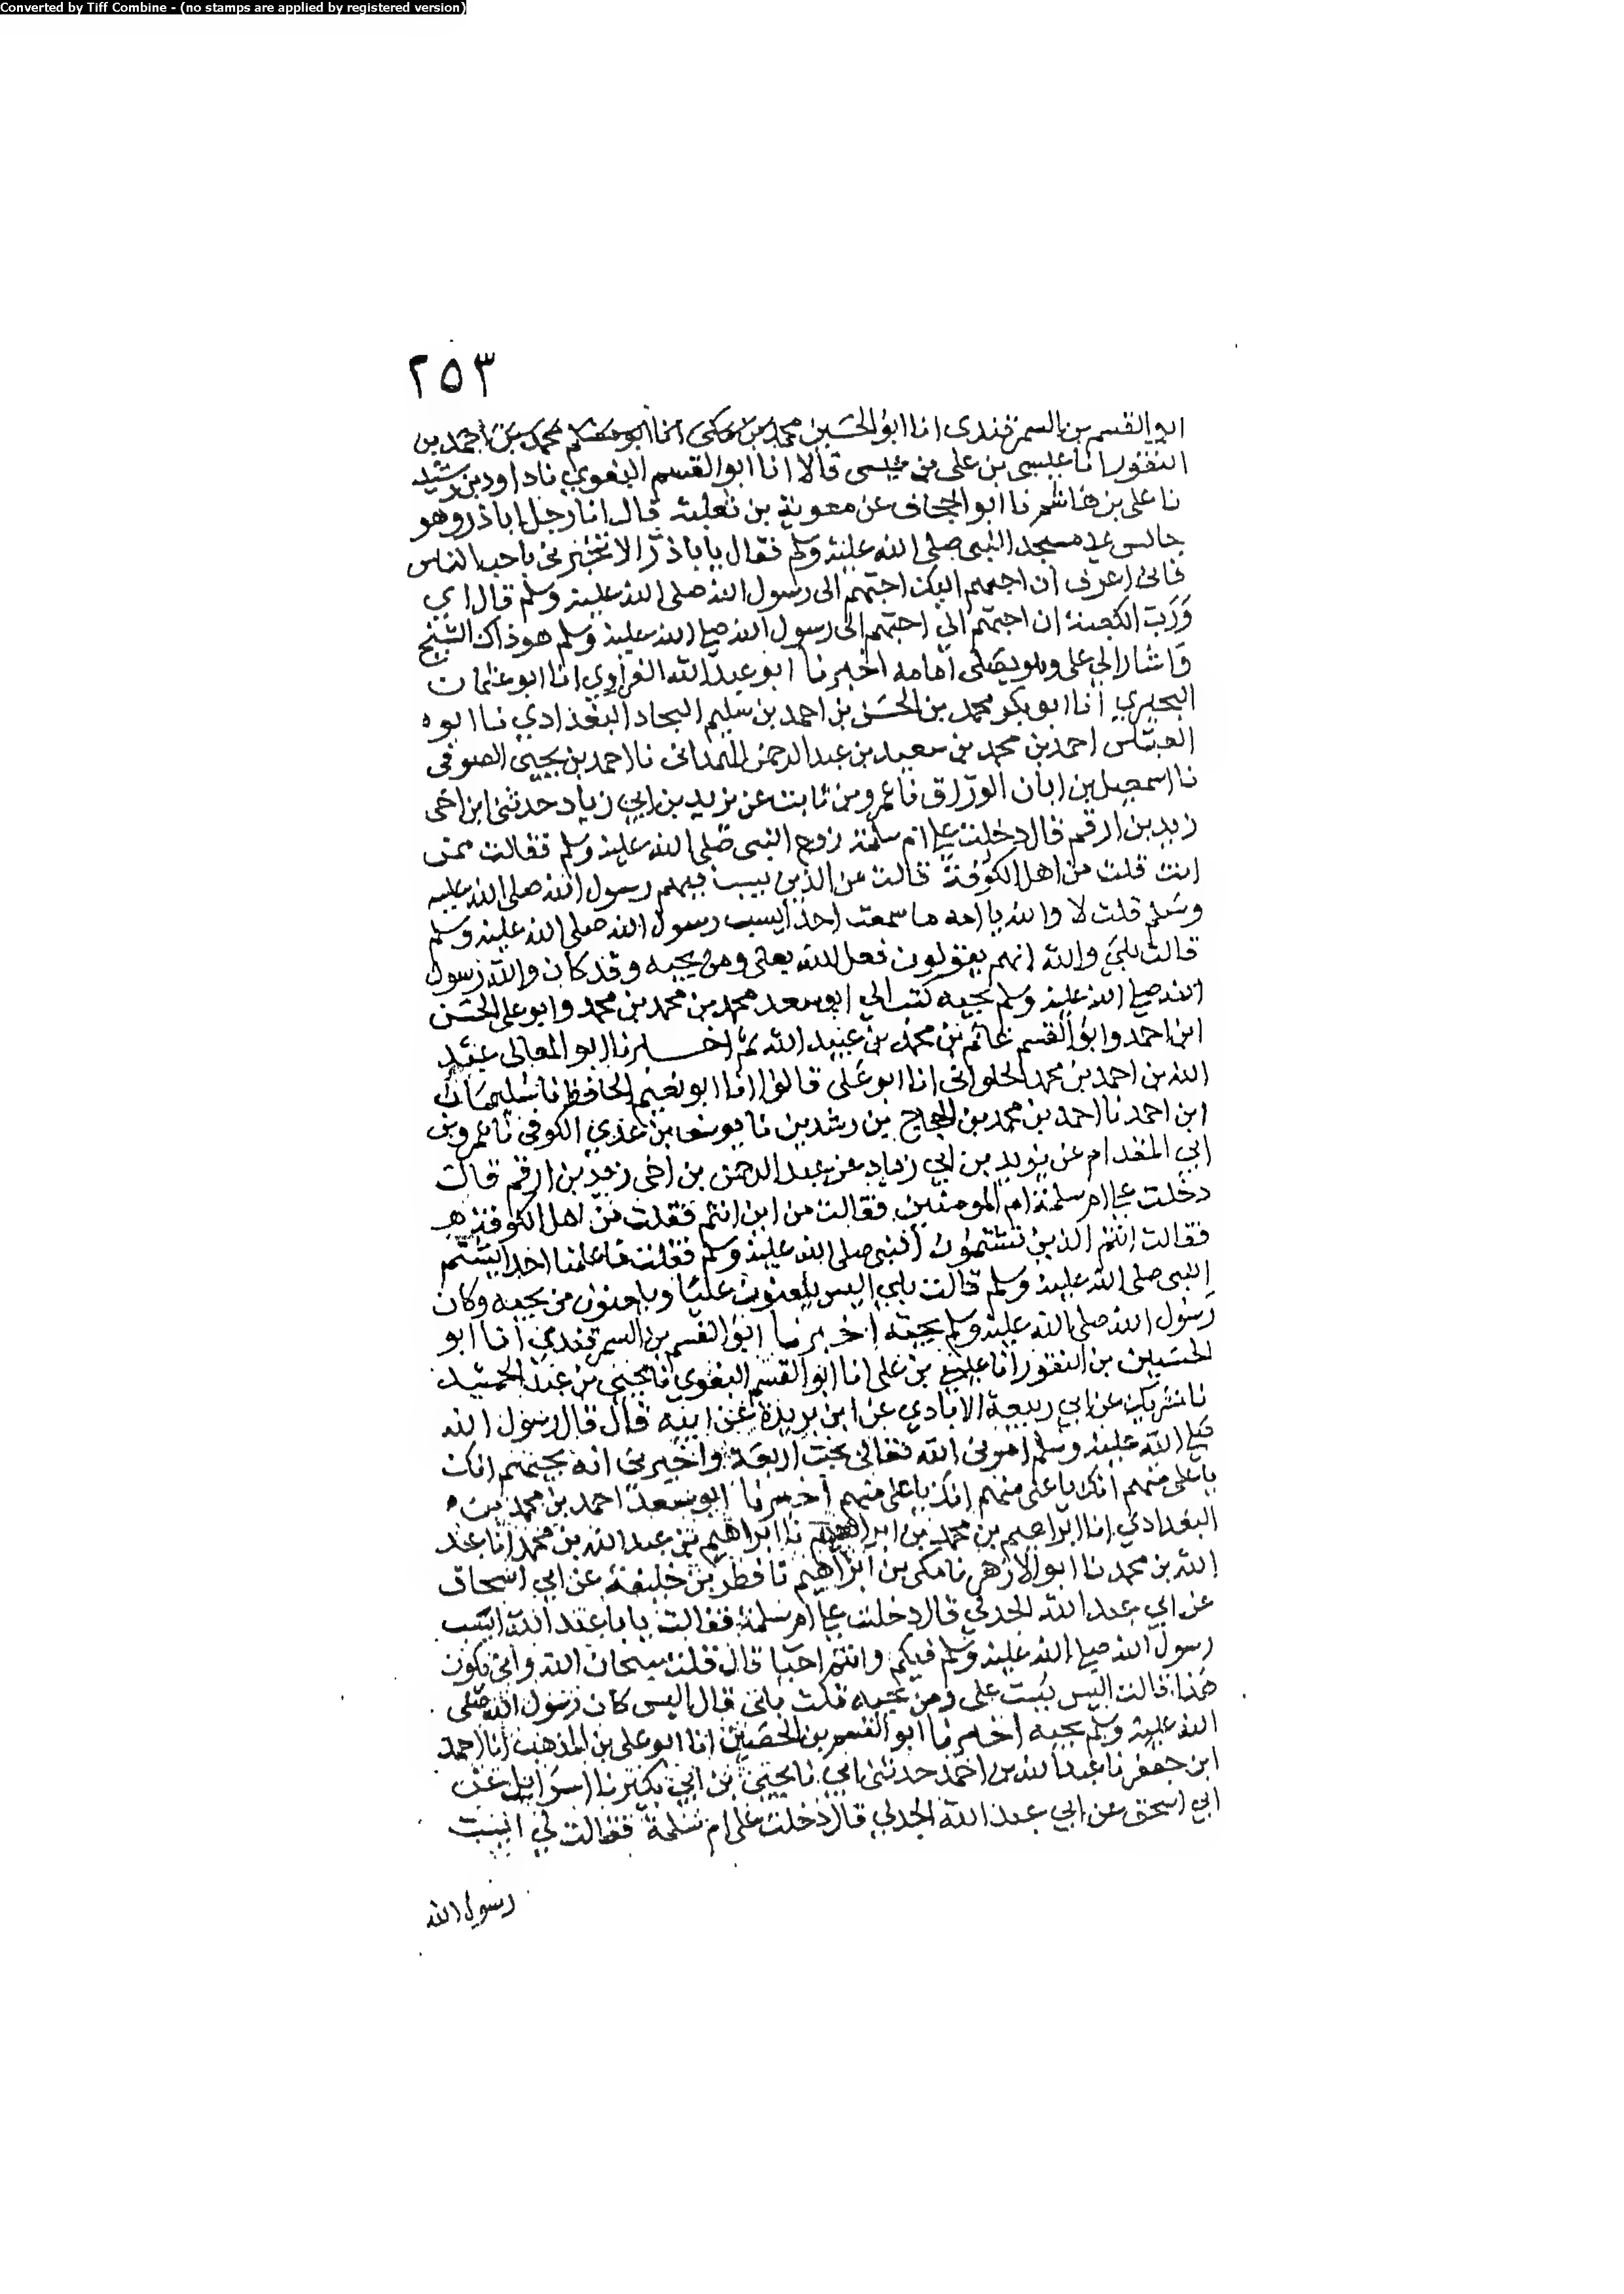 Converted by Tiff Combine - (no stamps are applied by registered version)
٢٥٣
ابو القسم بن السمرقندى انا ابو الحسين محمد بن مكى انا ابو مسلم محمد بن احمد بن
النقور انا عيسى بن على بن عيسى قالا انا ابو القسم البغوي نا داود بن رشيد
نا على بن هاشم نا ابو الجحاف عن معوية بن ثعلبة قال اتا رجل اباذر وهو
جالس في مسجد النبى صلى الله عليه وسلم فقال يا باذر الا تخبرنى باحب الناس
فانى اعرف ان احبهم اليك احبهم الى رسول الله صلى الله عليه وسلم قال اي
ورب الكعبة ان احبهم الي احبهم الى رسول الله صلى الله عليه وسلم هو ذاك الشيخ
واشار الي على وهو يصلى امامه اخبرنا ابو عبد الله الفراوي انا ابو عثمان
البحيري انا ابو بكر محمد بن الحسن بن احمد بن سليم البجاد البغدادي نا ابو
العباس احمد بن محمد بن سعيد بن عبد الرحمن الهمدانى نا احمد بن يحيى الصوفى
نا اسمعيل بن ابان الوراق نا عمرو بن ثابت عن يزيد بن ابي زياد حدثنى ابن اخى
زيد بن ارقم قال دخلت على ام سلمة زوج النبى صلى الله عليه وسلم فقالت ممن
انت قلت من اهل الكوفة قالت من الذين يسب فيهم رسول الله صلى الله عليه
وسلم قلت لا والله يا امه ما سمعت احدا يسب رسول الله صلى الله عليه وسلم
قالت بلى والله انهم يقولون فعل الله بعلى ومن يحبه وقد كان والله رسول
الله صلى الله عليه وسلم يحبه كتب الي ابو سعد محمد بن محمد بن محمد وابو على الحسن
ابن احمد وابو القسم غانم بن محمد بن عبيد الله ثم اخبرنا ابو المعالى عبد
الله بن احمد بن محمد الحلوانى انا ابو على قالوا انا ابو نعيم الحافظ نا سليمان
ابن احمد نا احمد بن محمد بن الحجاج بن رشدين نا يوسف بن عدي الكوفى نا عمرو بن
ابي المقدام عن يزيد بن ابي زياد عن عبد الرحمن بن اخى زيد بن ارقم قال
دخلت على ام سلمة ام المومنين فقالت من اين انتم فقلت من اهل الكوفة
فقالت انتم الذين تشتمون النبى صلى الله عليه وسلم فقلت ما علمنا احدا يشتم
النبى صلى الله عليه وسلم قالت بلى اليس يلعنون عليا ويلعنون من يحبه وكان
رسول الله صلى الله عليه وسلم يحبه اخبرنا ابو القسم بن السمرقندى انا ابو
الحسين بن النقور انا عيسى بن على انا ابو القسم البغوي نا يحيى بن عبد الحميد
نا شريك عن ابي ربيعة الايادي عن ابن بريدة عن ابيه قال قال رسول الله
صلى الله عليه وسلم امرنى الله تعالى بحب اربعة واخبرنى انه يحبهم انك
يا على منهم انك يا على منهم انك يا على منهم اخبرنا ابو سعد احمد بن محمد بن
البغدادي انا ابراهيم بن محمد بن ابراهيم نا ابراهيم بن عبد الله بن محمد انا عبد
الله بن محمد نا ابو الازهر نا مكى بن ابراهيم نا فطر بن خليفة عن ابي اسحاق
عن ابي عبد الله الجدلي قال دخلت على ام سلمة فقالت يا با عبد الله ايسب
رسول الله صلى الله عليه وسلم فيكم وانتم احيا قال قلت سبحان الله وانى يكون
هذا قالت اليس يسب على ومن يحبه قلت بلى قال اليس كان رسول الله صلى
الله عليه وسلم يحبه اخبرنا ابو القسم بن الحصين انا ابو على بن المذهب انا احمد
ابن جعفر نا عبد الله بن احمد حدثنى ابي نا يحيى بن ابي بكير نا اسرايل عن
ابي اسحق عن ابي عبد الله الجدلي قال دخلت على ام سلمة فقالت لي ايسب
رسول الله